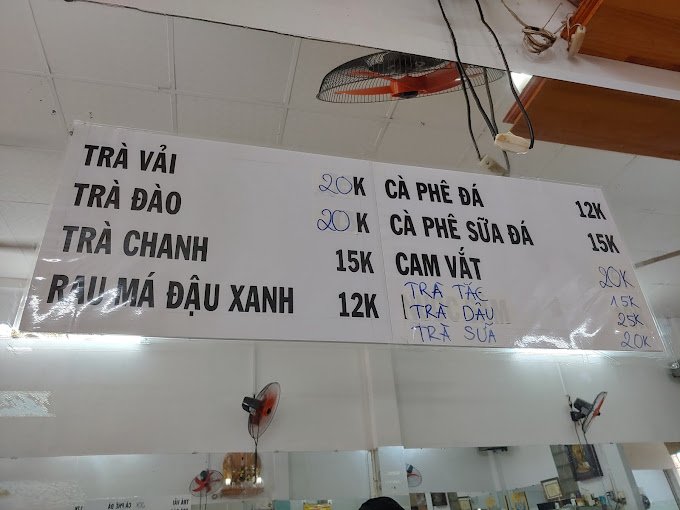 TRÀ VẢI 20K
TRÀ ĐÀO 20K
TRÀ CHANH 15K
RAU MÁ ĐẬU XANH 12K
CÀ PHÊ ĐÁ 12K
CÀ PHÊ SỮA ĐÁ 15K
CAM VẮT 20K
TRÀ TẮC 15K
TRÀ DÂU 25K
TRÀ SỮA 20K